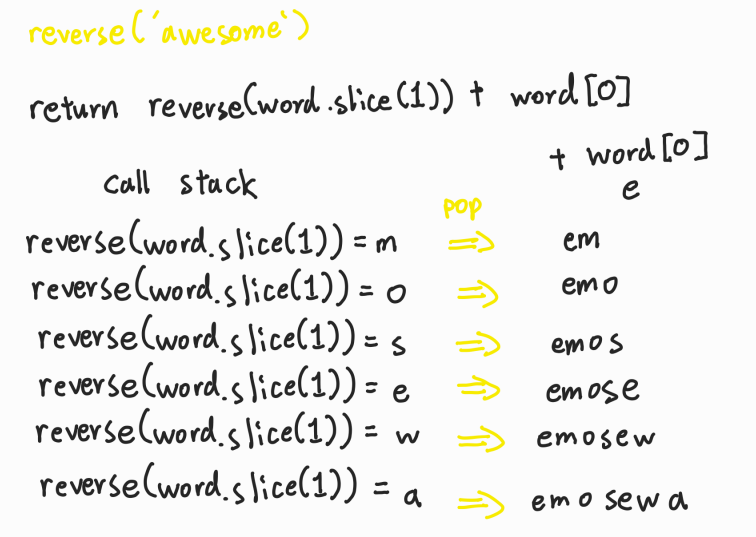 reverse('awesome')
return reverse(word.slice(1)) + word[0]
+ word[0]
call stack e
pop
reverse(word.slice(1)) = m ⇒ em
reverse(word.slice(1)) = o ⇒ emo
reverse(word.slice(1)) = s ⇒ emos
reverse(word.slice(1)) = e ⇒ emose
reverse(word.slice(1)) = w ⇒ emosew
reverse(word.slice(1)) = a ⇒ emosewa